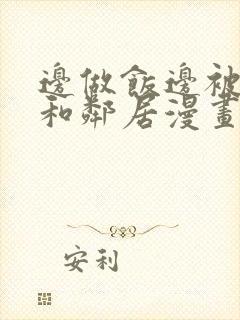 邊做飯邊被
和鄰居漫畫
安利